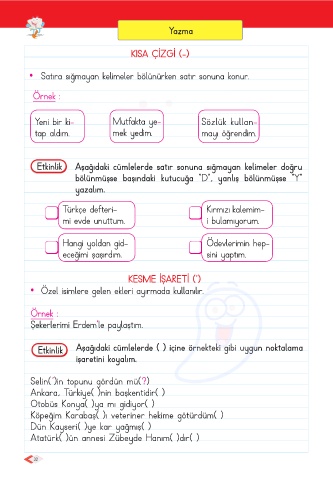 Yazma
KISA ÇİZGİ (-)
• Satıra sığmayan kelimeler bölünürken satır sonuna konur.
Örnek :
Yeni bir ki-
tap aldım.
Mutfakta ye-
mek yedim.
Sözlük kullan-
mayı öğrendim.
Etkinlik
Aşağıdaki cümlelerde satır sonuna sığmayan kelimeler doğru
bölünmüşse başındaki kutucuğa "D", yanlış bölünmüşse "Y"
yazalım.
Türkçe defteri-
mi evde unuttum.
Kırmızı kalemim-
i bulamıyorum.
Hangi yoldan gid-
eceğimi şaşırdım.
Ödevlerimin hep-
sini yaptım.
KESME İŞARETİ (')
• Özel isimlere gelen ekleri ayırmada kullanılır.
Örnek :
Şekerlerimi Erdem'le paylaştım.
Etkinlik
Aşağıdaki cümlelerde ( ) içine örnekteki gibi uygun noktalama
işaretini koyalım.
Selin(')in topunu gördün mü(?)
Ankara, Türkiye( )nin başkentidir( )
Otobüs Konya( )ya mı gidiyor( )
Köpeğim Karabaş( )ı veteriner hekime götürdüm( )
Dün Kayseri( )ye kar yağmış( )
Atatürk( )ün annesi Zübeyde Hanım( )dır( )